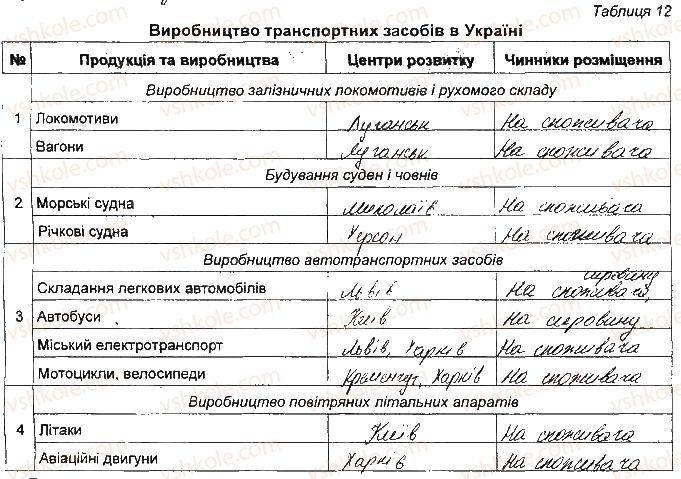 Таблиця 12
Виробництво транспортних засобів в Україні
№ Продукція та виробництва Центри розвитку Чинники розміщення
Виробництво залізничних локомотивів і рухомого складу
1 Локомотиви Луганськ На споживача
Вагони Луганськ На споживача
Будування суден і човнів
2 Морські судна Миколаїв На споживача
Річкові судна Херсон На споживача
Виробництво автотранспортних засобів
сировину
Складання легкових автомобілів Львів На споживача,
3 Автобуси Київ На сировину
Міський електротранспорт Львів, Харків На споживача
Мотоцикли, велосипеди Кременчуг, Харків На споживача
Виробництво повітряних літальних апаратів
4 Літаки Київ На споживача
Авіаційні двигуни Харків На споживача